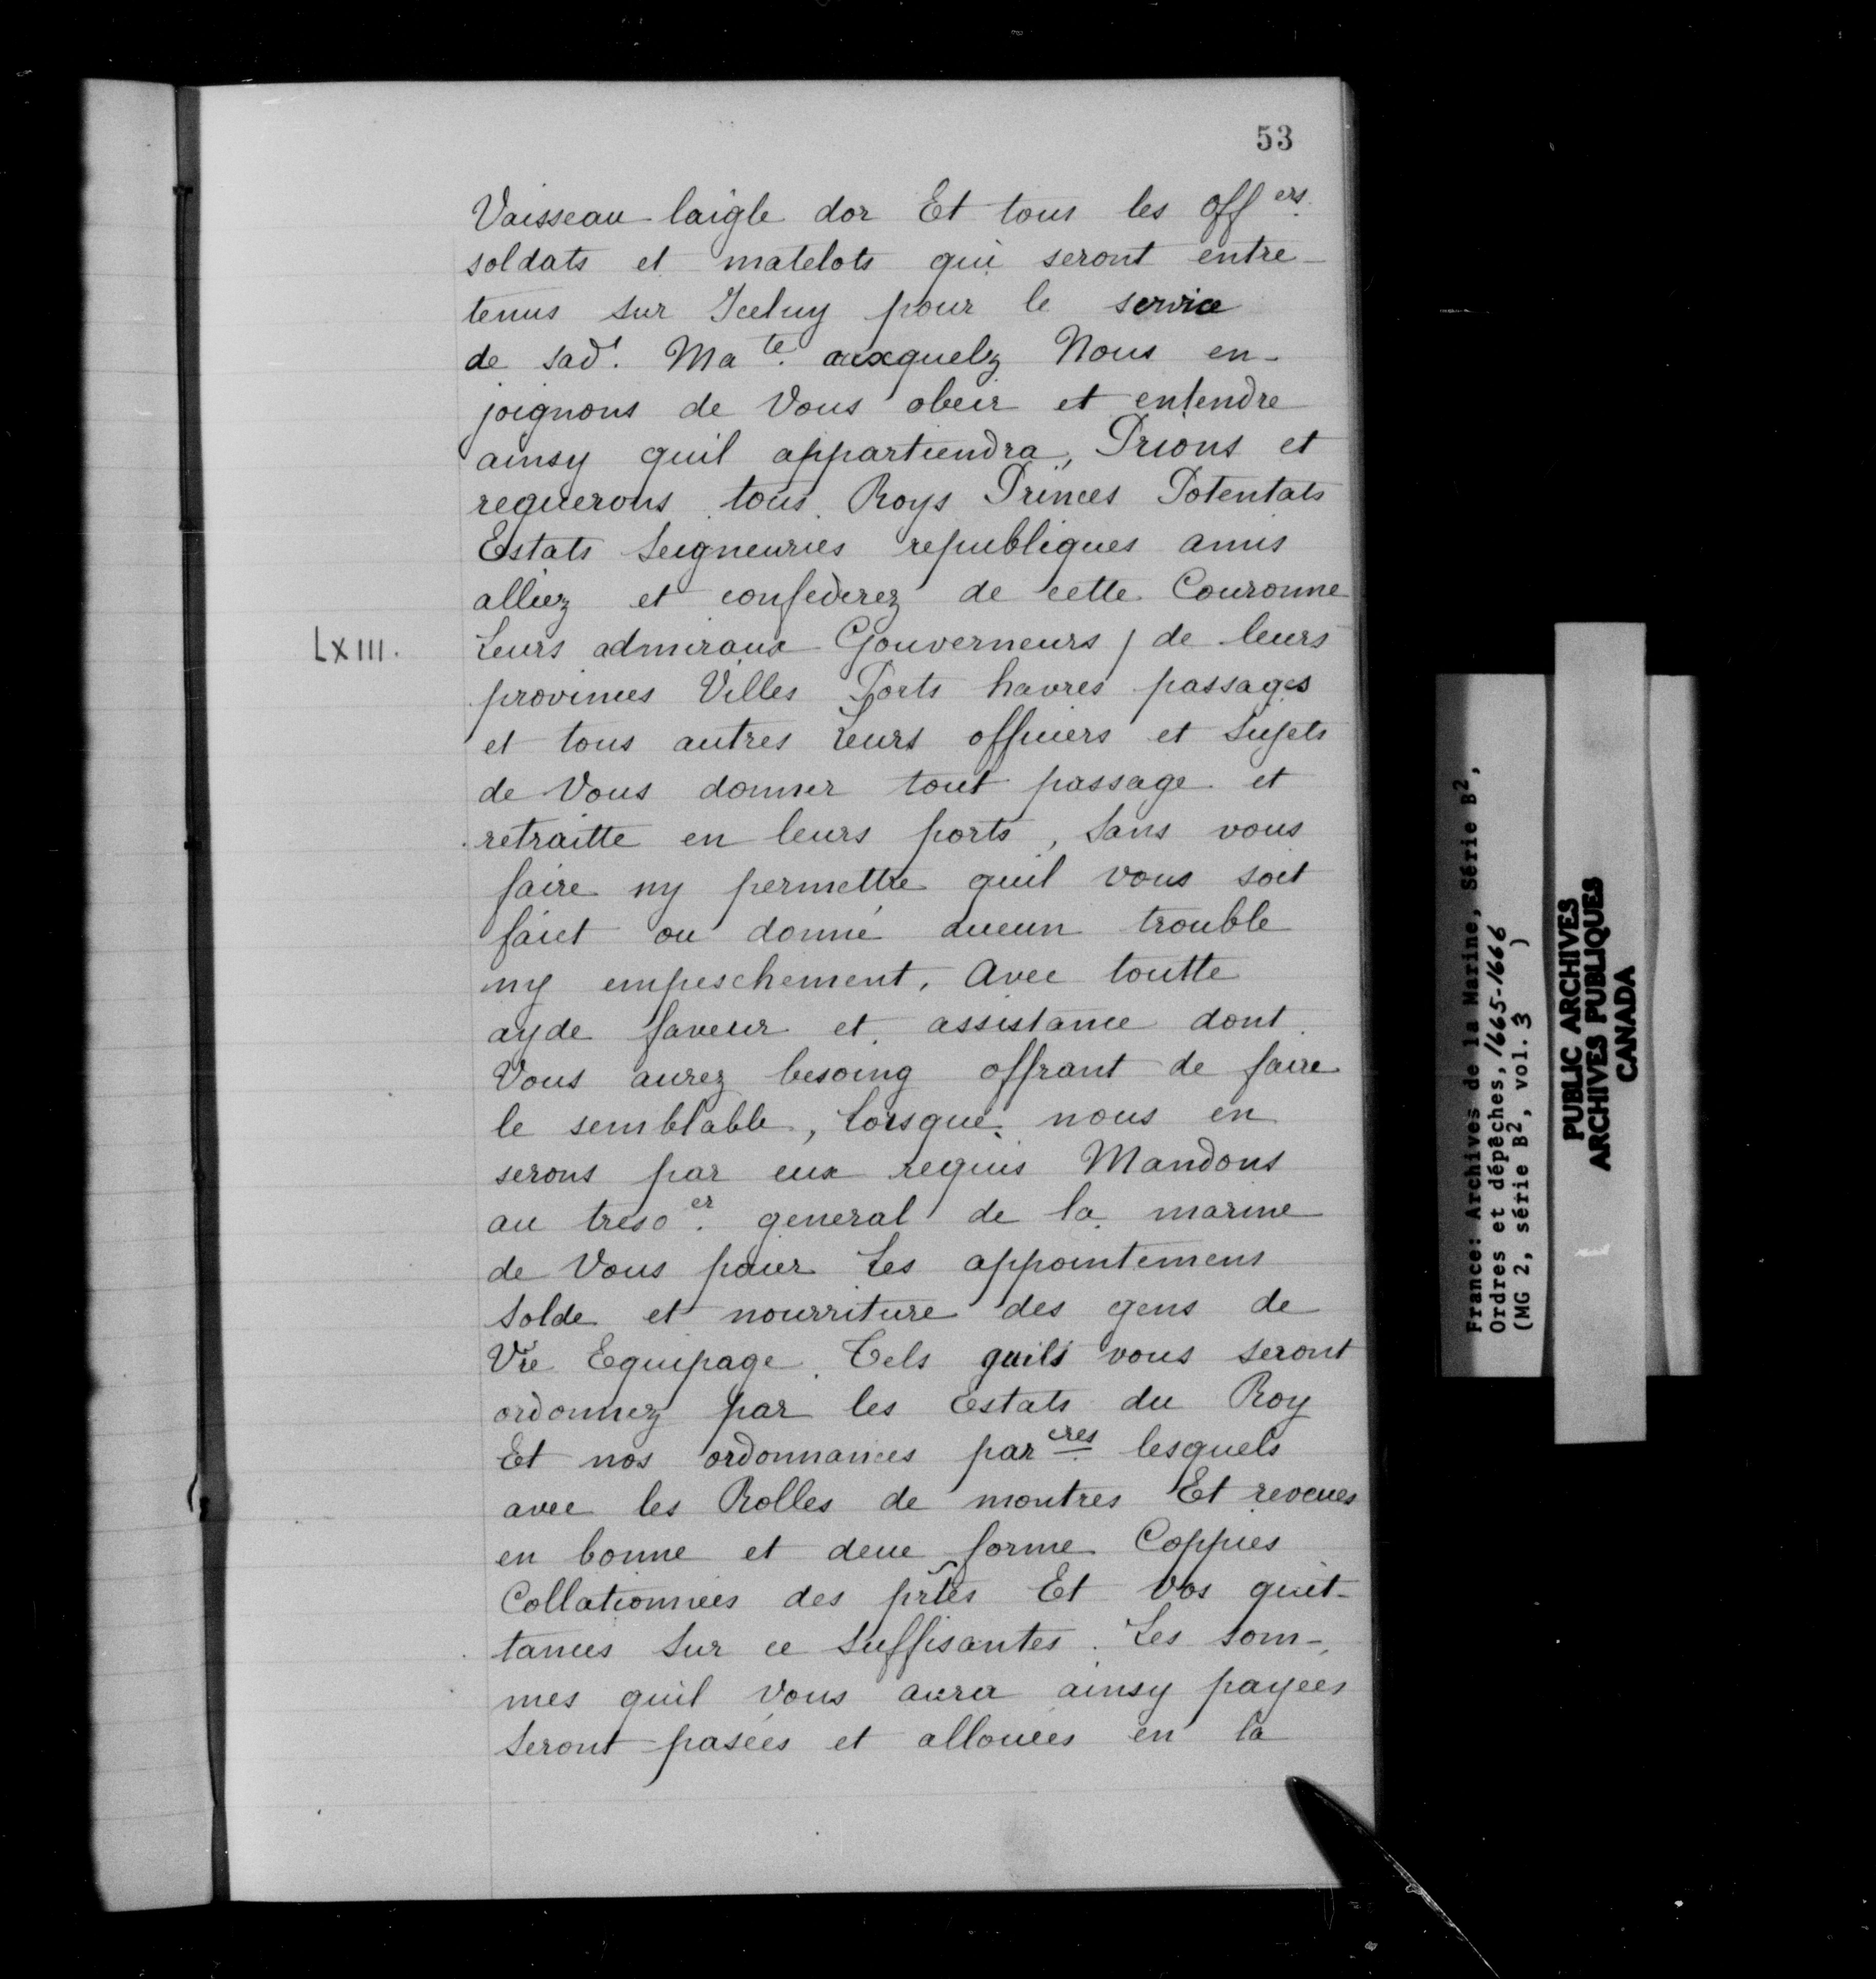 53
Vaisseau laigle dor Et tous les off ers.
soldats et matelots qui seront entre-
tenus sur Iceluy pour le service
de sad t. Ma te. auxquelz Nous en-
joignons de Vous obeir et entendre
ainsy quil appartiendra, Prions et
requerons tous Roys Princes Potentats
Estats Seigneuries republiques amis
alliez et confederez de cette Couronne
LXIII. Leurs admiraux Gouverneurs / de leurs
provinces Villes Ports havres passages
et tous autres Leurs officiers et Sujets
de Vous donner tout passage et
retraitte en leurs ports, Sans vous
faire ny permettre quil vous soit
faict ou donné aucun trouble
ny empeschement, Avec toutte
ayde faveur et assistance dont
Vous aurez besoing offrant de faire
le semblable, Lorsque nous en
serons par eux requis Mandons
au treso er. general de la marine
de Vous paier Les appointemens
Solde et nourriture des gens de
Vre Equipage. Tels quils vous seront
ordonnez par les Estats du Roy
Et nos ordonnances par eres lesquels
avec les Rolles de montres Et reveues
en bonne et deue forme Coppies
Collationnées des prtes Et Vos quit-
tances Sur ce Suffisantes. Les Som-
mes quil Vous aura ainsy payées
Seront pasées et allouées en la
France: Archives de la Marine, Série B²,
Ordres et dépêches, 1665-1666
(MG 2, série B², vol. 3 )
PUBLIC ARCHIVES
ARCHIVES PUBLIQUES
CANADA